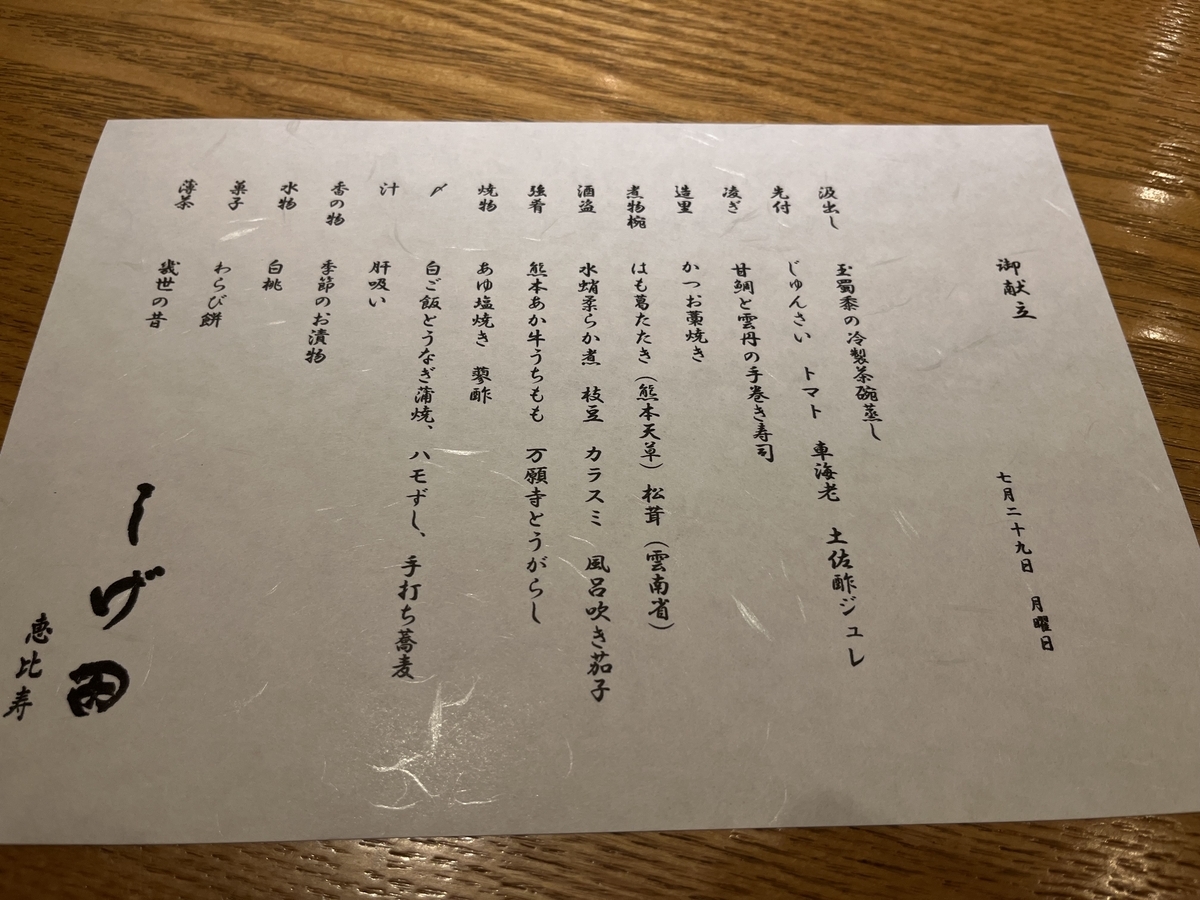 御献立　七月二十九日　月曜日
汲出し　玉蜀黍の冷製茶碗蒸し
先付　じゅんさい　トマト　車海老　土佐酢ジュレ
凌ぎ　甘鯛と雲丹の手巻き寿司
造里　かつお藁焼き
煮物椀　はも葛たたき（熊本天草）松茸（雲南省）
酒盗　水蛸柔らか煮　枝豆　カラスミ　風呂吹き茄子
強肴　熊本あか牛うちもも　万願寺とうがらし
焼物　あゆ塩焼き　蓼酢
〆　白ご飯とうなぎ蒲焼、ハモずし、手打ち蕎麦
汁　肝吸い
香の物　季節のお漬物
水物　白桃
菓子　わらび餅
薄茶　幾世の昔
しげ田
恵比寿